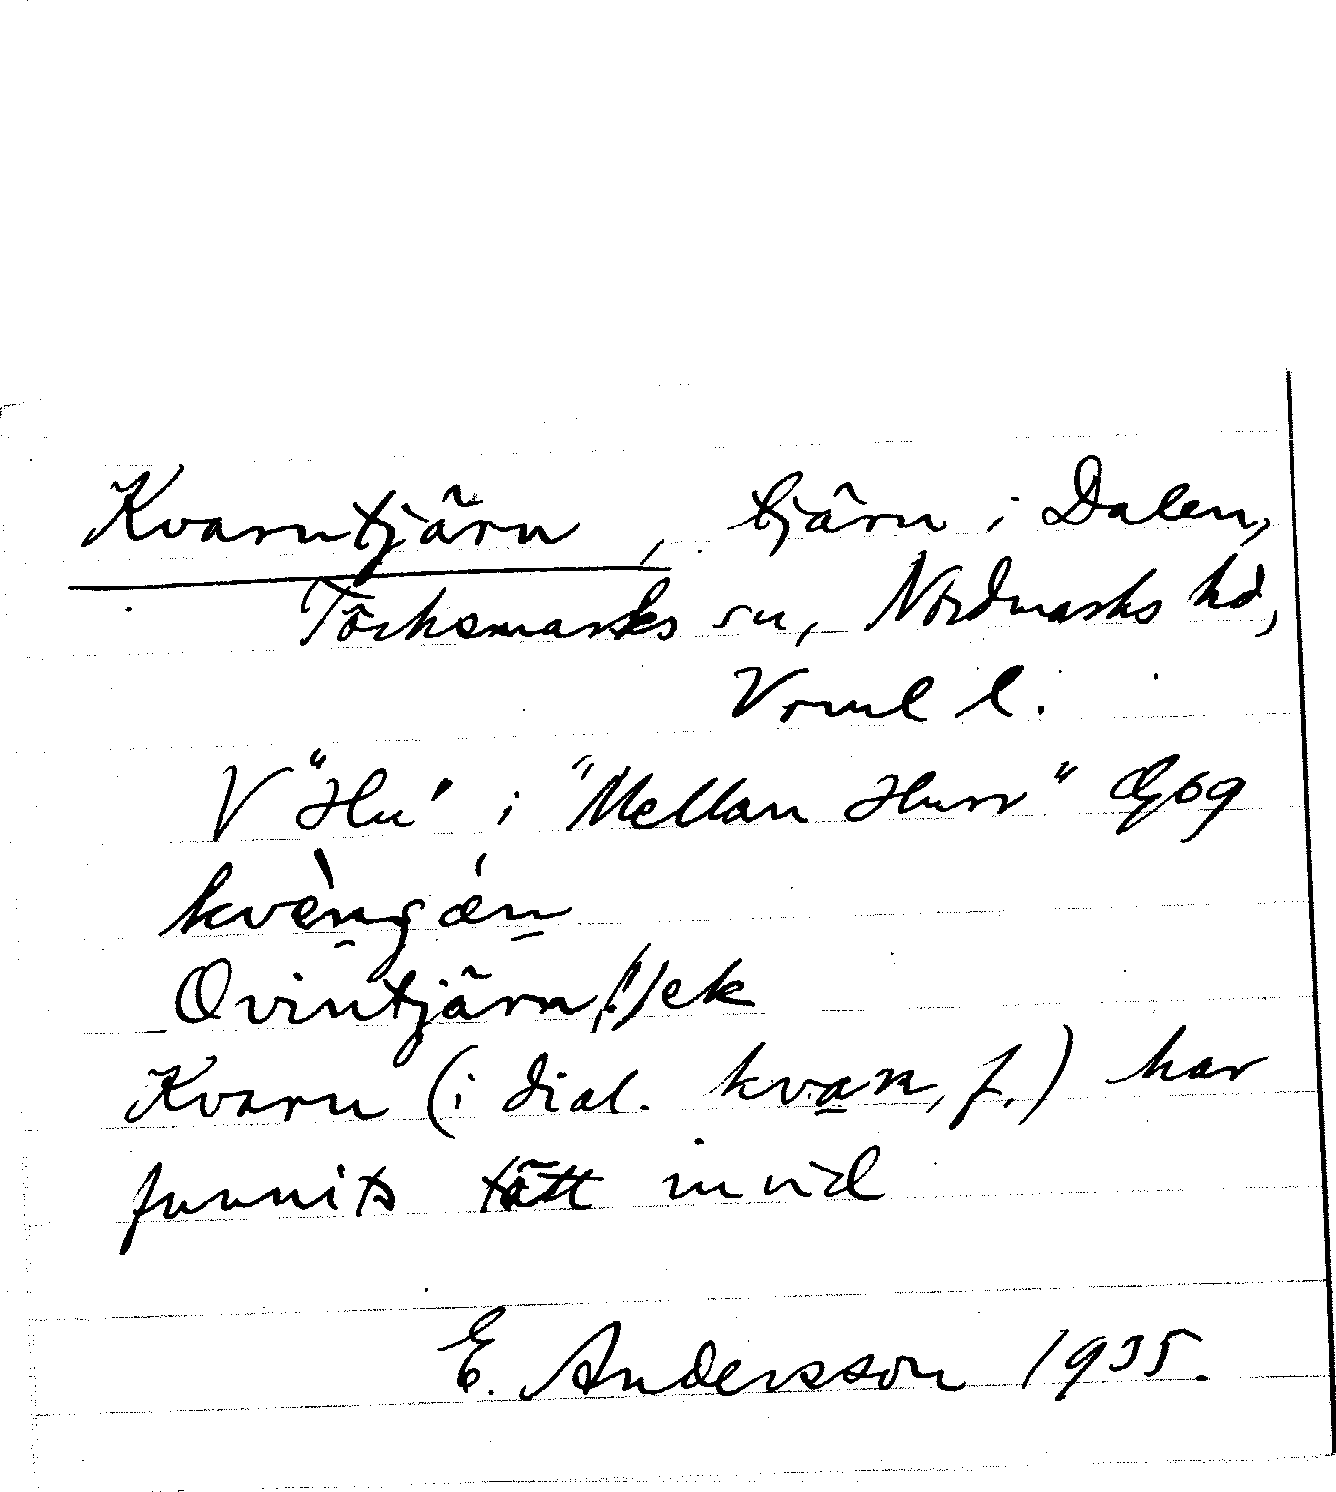 Kvarntjärn, tjärn i Dalen,
Töcksmarks sn, Nordmarks hd,
Vrml l.
V "Hu" i "Mellan Hurr" Gbg
kvæ̀ṇgǽn
Qvintjärn(!) ek
Kvarn (i dial. kvan, f.) har
funnits tätt invid
E. Andersson 1935.